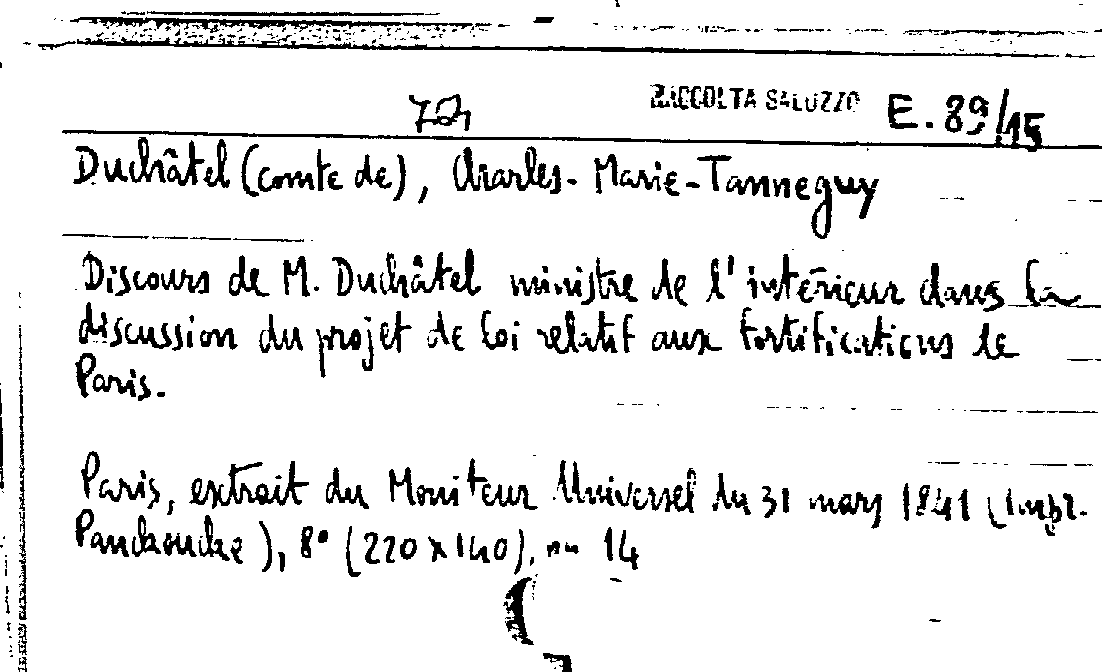 RACCOLTA SALUZZO E. 89/15
Duchâtel (comte de), Charles-Marie-Tanneguy
Discours de M. Duchâtel ministre de l'intérieur dans la
discussion du projet de loi relatif aux fortifications de
Paris.
Paris, extrait du Moniteur Universel du 31 mars 1841 (Impr.
Panckoucke), 8° (220 x 140), 14